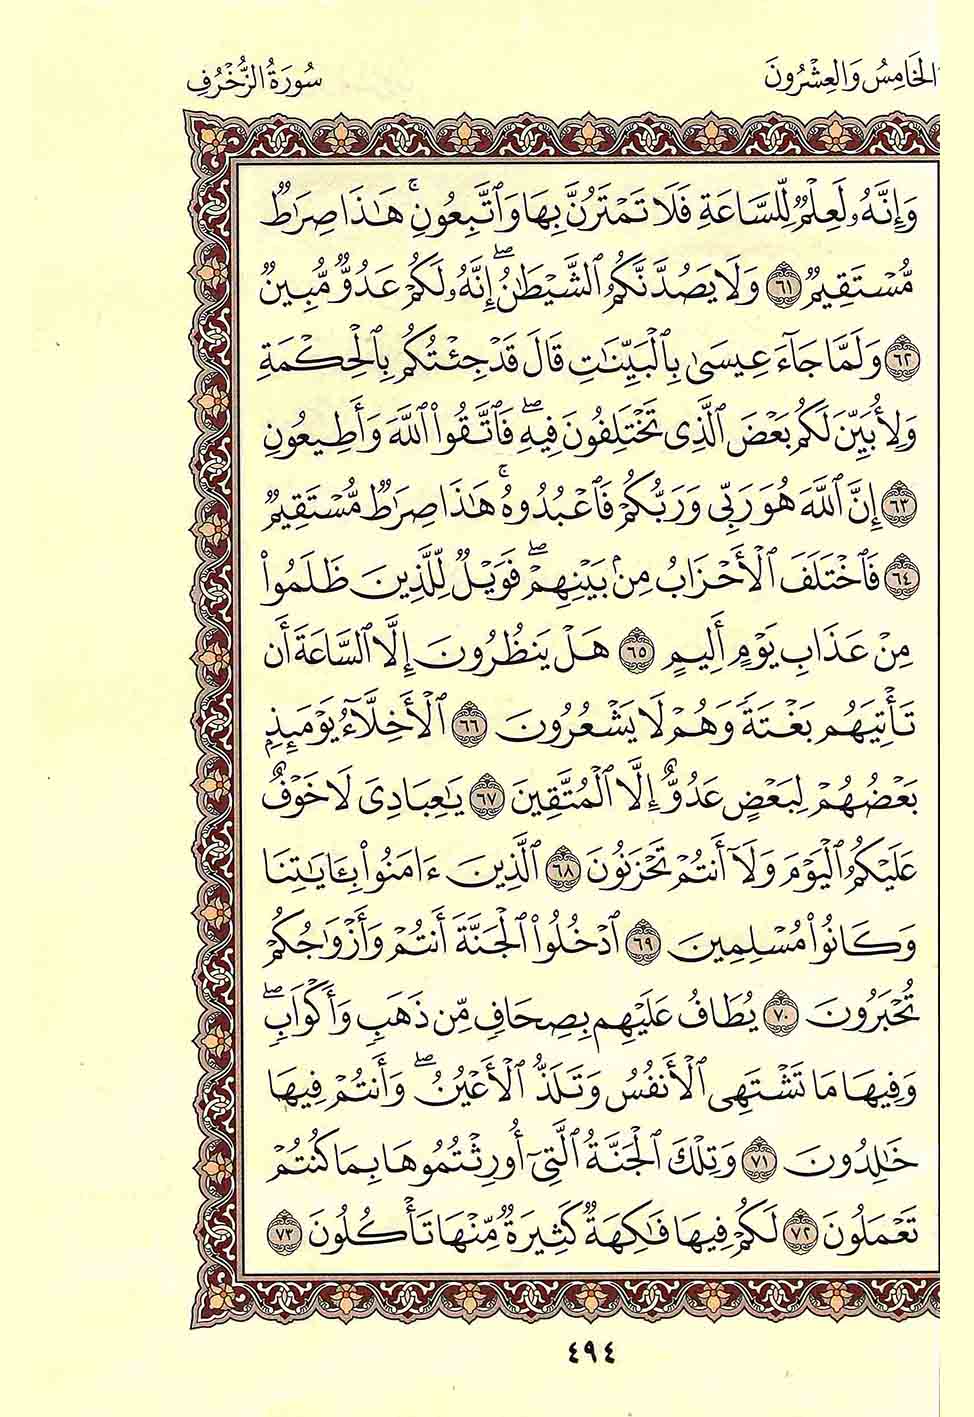 الخَامِسُ وَالعِشْرُونَ
سُورَةُ الزُّخْرُفِ
وَإِنَّهُۥ لَعِلْمٌ لِّلسَّاعَةِ فَلَا تَمْتَرُنَّ بِهَا وَٱتَّبِعُونِ ۚ هَٰذَا صِرَٰطٌ
مُّسْتَقِيمٌ ٦١ وَلَا يَصُدَّنَّكُمُ ٱلشَّيْطَٰنُ ۖ إِنَّهُۥ لَكُمْ عَدُوٌّ مُّبِينٌ
٦٢ وَلَمَّا جَآءَ عِيسَىٰ بِٱلْبَيِّنَٰتِ قَالَ قَدْ جِئْتُكُم بِٱلْحِكْمَةِ
وَلِأُبَيِّنَ لَكُم بَعْضَ ٱلَّذِى تَخْتَلِفُونَ فِيهِ ۖ فَٱتَّقُوا۟ ٱللَّهَ وَأَطِيعُونِ
٦٣ إِنَّ ٱللَّهَ هُوَ رَبِّى وَرَبُّكُمْ فَٱعْبُدُوهُ ۚ هَٰذَا صِرَٰطٌ مُّسْتَقِيمٌ
٦٤ فَٱخْتَلَفَ ٱلْأَحْزَابُ مِنۢ بَيْنِهِمْ ۖ فَوَيْلٌ لِّلَّذِينَ ظَلَمُوا۟
مِنْ عَذَابِ يَوْمٍ أَلِيمٍ ٦٥ هَلْ يَنظُرُونَ إِلَّا ٱلسَّاعَةَ أَن
تَأْتِيَهُم بَغْتَةً وَهُمْ لَا يَشْعُرُونَ ٦٦ ٱلْأَخِلَّآءُ يَوْمَئِذٍۭ
بَعْضُهُمْ لِبَعْضٍ عَدُوٌّ إِلَّا ٱلْمُتَّقِينَ ٦٧ يَٰعِبَادِى لَا خَوْفٌ
عَلَيْكُمُ ٱلْيَوْمَ وَلَآ أَنتُمْ تَحْزَنُونَ ٦٨ ٱلَّذِينَ ءَامَنُوا۟ بِـَٔايَٰتِنَا
وَكَانُوا۟ مُسْلِمِينَ ٦٩ ٱدْخُلُوا۟ ٱلْجَنَّةَ أَنتُمْ وَأَزْوَٰجُكُمْ
تُحْبَرُونَ ٧٠ يُطَافُ عَلَيْهِم بِصِحَافٍ مِّن ذَهَبٍ وَأَكْوَابٍ ۖ
وَفِيهَا مَا تَشْتَهِى ٱلْأَنفُسُ وَتَلَذُّ ٱلْأَعْيُنُ ۖ وَأَنتُمْ فِيهَا
خَٰلِدُونَ ٧١ وَتِلْكَ ٱلْجَنَّةُ ٱلَّتِىٓ أُورِثْتُمُوهَا بِمَا كُنتُمْ
تَعْمَلُونَ ٧٢ لَكُمْ فِيهَا فَٰكِهَةٌ كَثِيرَةٌ مِّنْهَا تَأْكُلُونَ ٧٣
٤٩٤